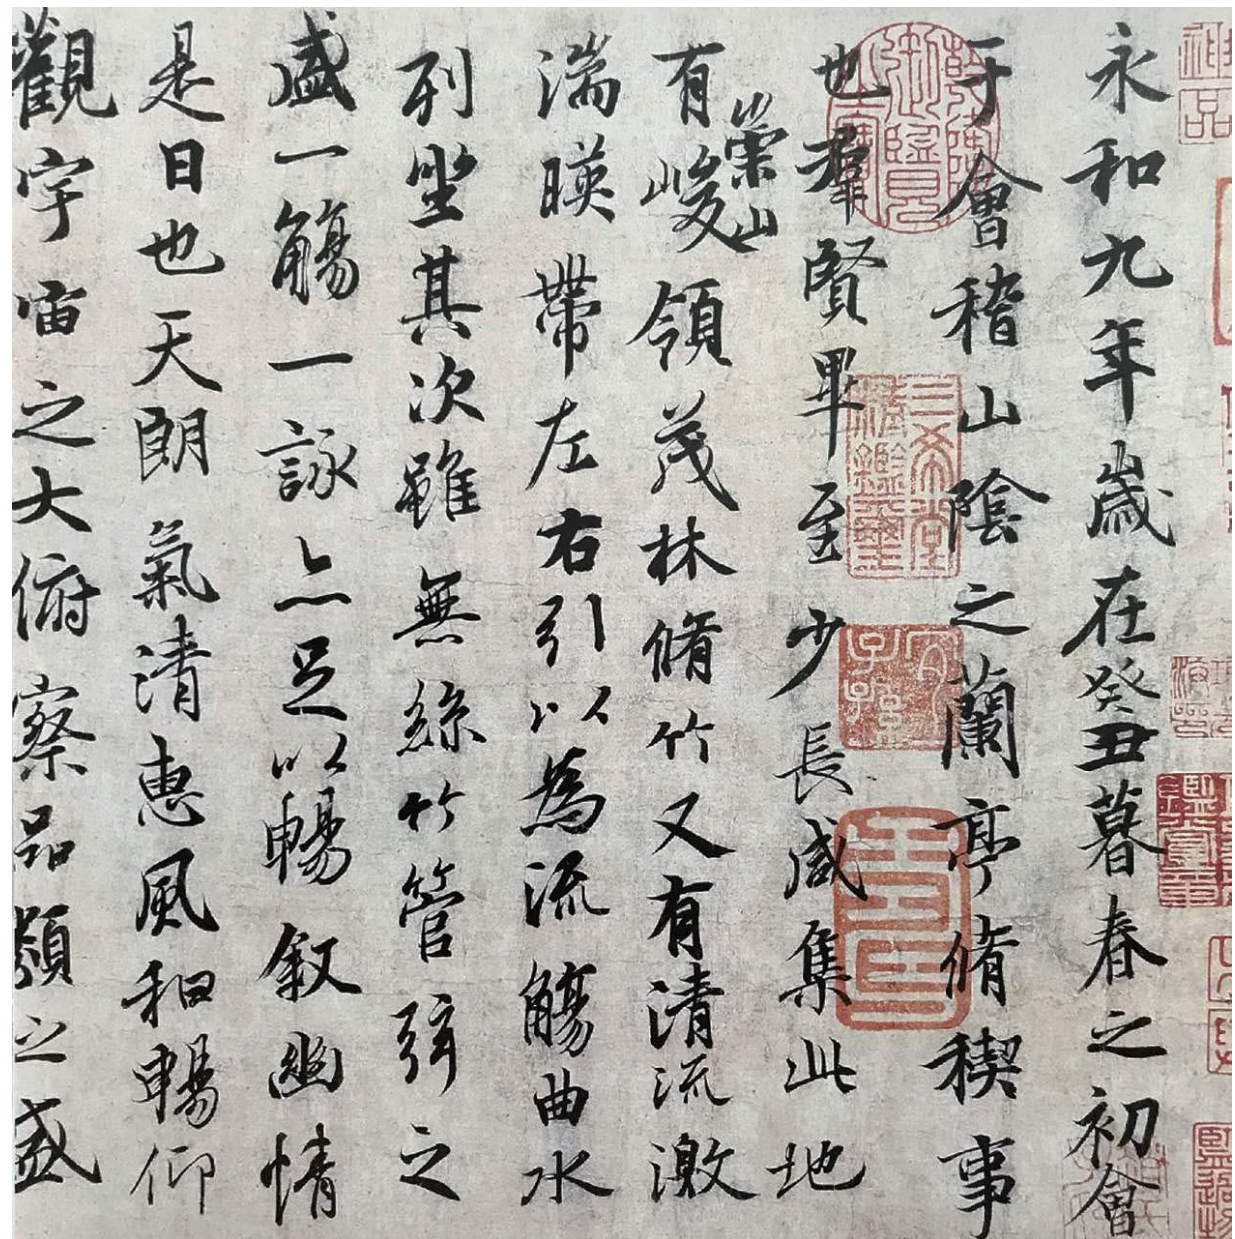 永和九年歲在癸丑暮春之初會
于會稽山陰之蘭亭脩稧事
也羣賢畢至少長咸集此地
有崇山峻領茂林脩竹又有清流激
湍暎帶左右引以為流觴曲水
列坐其次雖無絲竹管弦之
盛一觴一詠亦足以暢叙幽情
是日也天朗氣清惠風和暢仰
觀宇宙之大俯察品類之盛
神品
三希堂精鑑璽
宜子孫